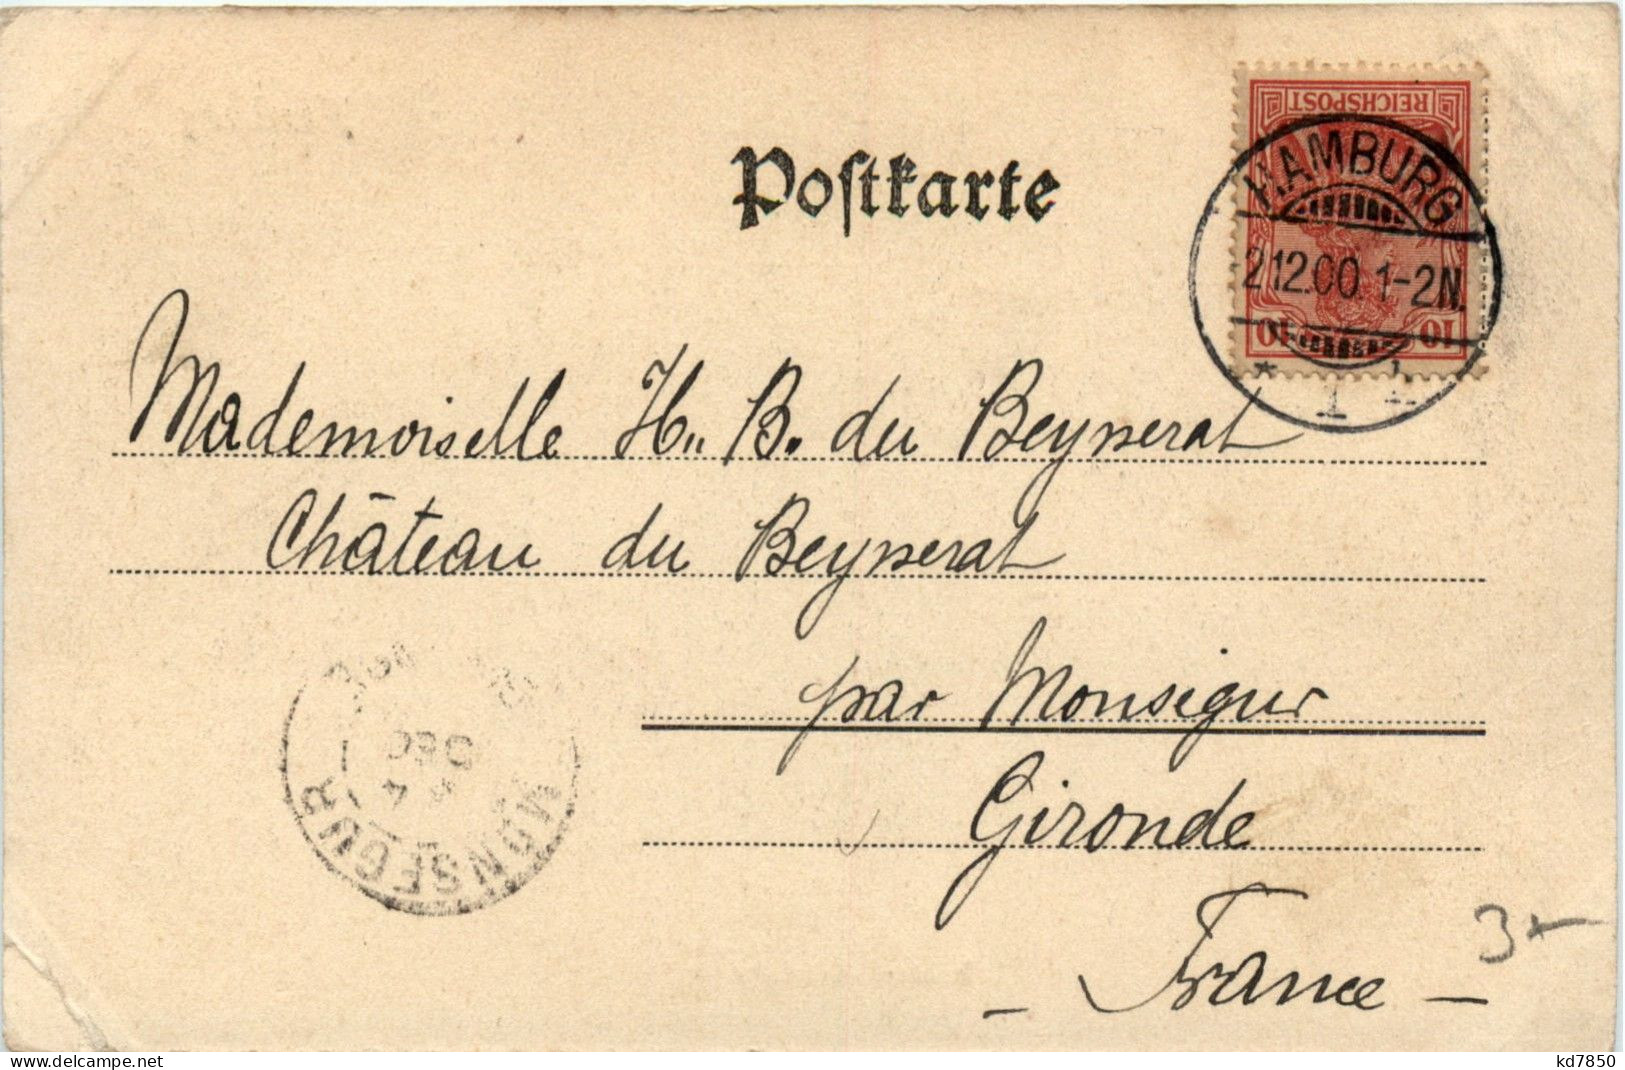 Postkarte
REICHSPOST
HAMBURG
2.12.00. 1-2N.
10 10
* 1
Mademoiselle H. B. du Beysserat
Château du Beysserat
par Monsegur
Gironde
- France -
MONSEGUR
4 DEC
3
www.delcampe.net
kd7850